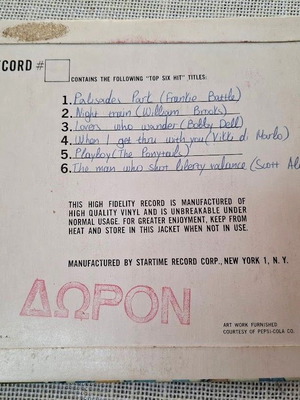 ECORD #
CONTAINS THE FOLLOWING "TOP SIX HIT" TITLES:
1. Palisades Park (Frankie Battle)
2. Night train (William Brooks)
3. Lovers who wander (Bobby Dell)
4. When I get thru with you (Vikki di Marko)
5. Playboy (The Ponytails)
6. The man who shin liberty valance (Scott Al
THIS HIGH FIDELITY RECORD IS MANUFACTURED OF
HIGH QUALITY VINYL AND IS UNBREAKABLE UNDER
NORMAL USAGE. FOR GREATER ENJOYMENT, KEEP FROM
HEAT AND STORE IN THIS JACKET WHEN NOT IN USE.
MANUFACTURED BY STARTIME RECORD CORP., NEW YORK 1, N. Y.
ΔΩΡΟΝ
ART WORK FURNISHED
COURTESY OF PEPSI-COLA CO.